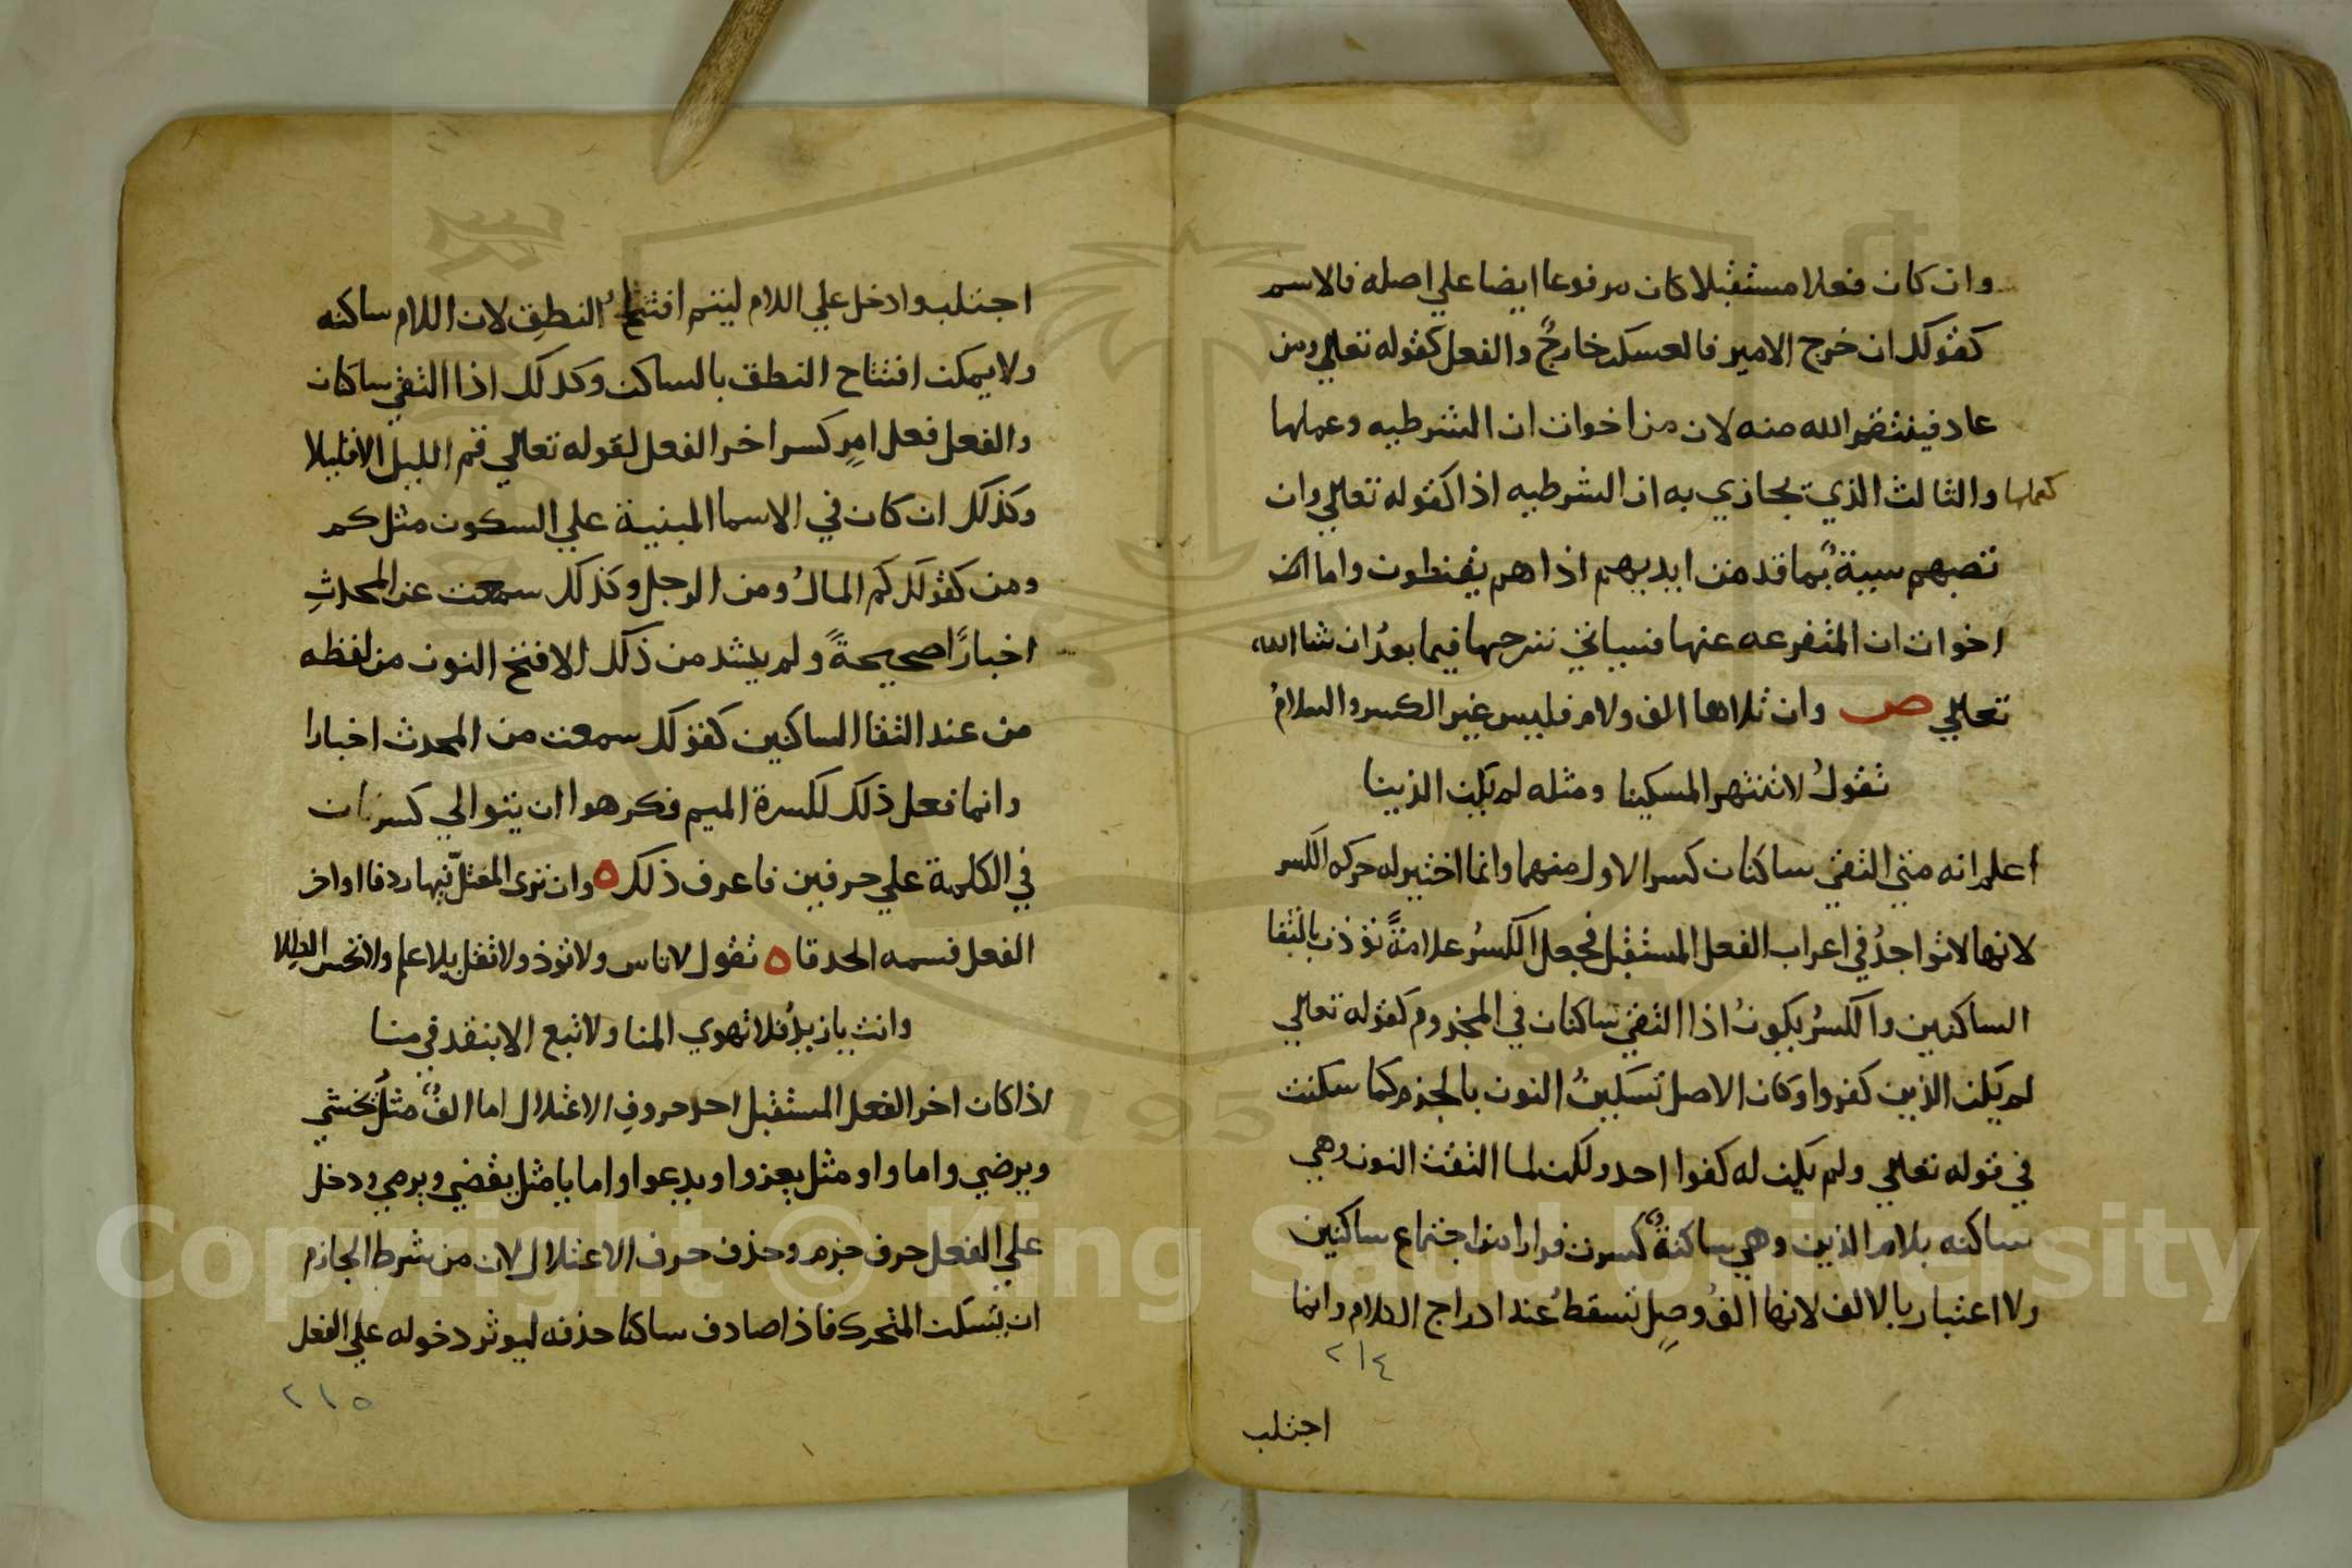 وان كان فعلا مستقبلا كان مرفوعا ايضا علي اصله فالاسم
كقولك ان خرج الامير فالعسكر خارجٌ والفعل كقوله تعالي ومن
عاد فينتقم الله منه لان من اخوات ان الشرطيه وعملها
كعملها والثالث الذي تجازي به ان الشرطيه اذا كقوله تعالي وان
تصبهم سيية بما قدمت ايديهم اذا هم يقنطون واما
اخوات ان المتفرعه عنها فسياتي شرحها فيما بعدُ ان شا الله
تعالي ص وان تلاها الف ولام فليس غير الكسر والسلامُ
تقولُ لا تنتهر المسكينا ومثله لم يكن الذينا
اعلم انه متي التقي ساكنان كسر الاول منهما وانما اختير له حركه الكسر
لانها لا تواجدُ في اعراب الفعل المستقبل فجعل الكسرُ علامةً توذن بالتقا
الساكنين والكسرُ يكونُ اذا التقي ساكنان في المجزوم كقوله تعالي
لم يكن الذين كفروا وكان الاصل تسكينُ النون بالجزم كما سكنت
في قوله تعالي ولم يكن له كفوا احد ولكن لما التقت النون وهي
ساكنه بلام الذين وهي ساكنةٌ كسرت فرارا من اجتماع ساكنين
ولا اعتبار بالالف لانها الفُ وصلٍ تسقطُ عند ادراج الكلام وانما
٢١٤
اجتلب
اجتلب وادخل علي اللام ليتم افتتاح النطقِ لان اللام ساكنه
ولا يمكن افتتاح النطق بالساكن وكذلك اذا التقي ساكنان
والفعل فعل امرٍ كسر اخر الفعل لقوله تعالي قم الليل الا قليلا
وكذلك ان كان في الاسما المبنية علي السكون مثل كم
ومن كقولك كم المالُ ومن الرجل وكذلك سمعت عن المحدثِ
اخبارًا صحيحةً ولم يشد من ذلك الا فتح النون من لفظه
من عند التقا الساكنين كقولك سمعت من المحدث اخبارا
وانما فعل ذلك لكسرة الميم فكرهوا ان يتوالي كسرتان
في الكلمة علي حرفين فاعرف ذلك ٥ وان تري المعتلّ فيها ردفا اواخر
الفعل فسمه الحدقا ٥ تقول لا تاس ولا توذ ولا تقل بلا علم ولا تحس الطلا
وانت يا زيدُ فلا تهوي المنا ولا تبع الا بنقد في منا
اذا كان اخر الفعل المستقبل احد حروفِ الاعتلال اما الفٌ مثلُ يخشي
ويرضي واما واو مثل يغزوا ويدعوا واما يا مثل يقضي ويرمي ودخل
علي الفعل حرف جزم وحذف حرف الاعتلال لان من شرط الجازم
ان يسكن المتحرك فاذا صادف ساكنا حذفه ليوثر دخوله علي الفعل
٢١٥
Copyright © King Saud University
1957